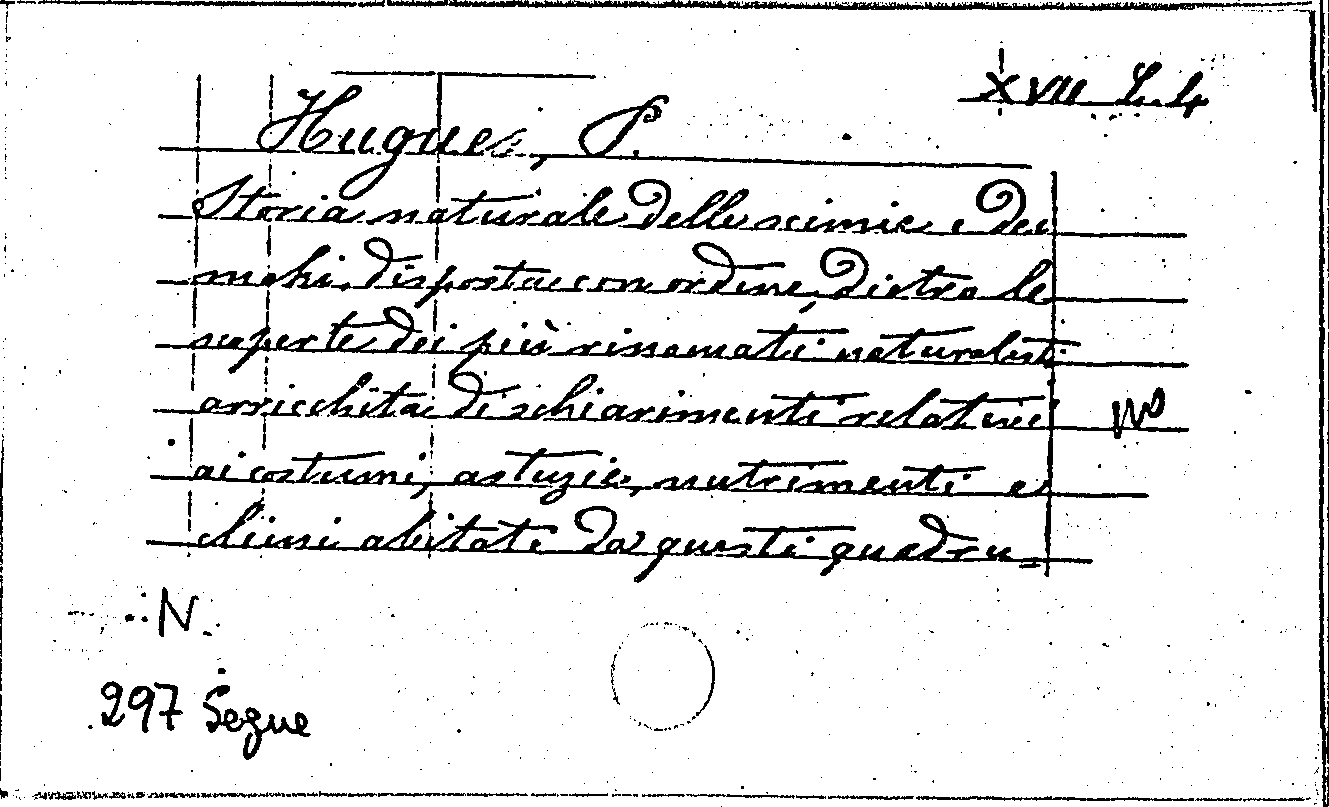 XVII L. 4
Hugues, P.
Storia naturale delle scimie e dei
maki, disposta con ordine, dietro le
scoperte dei più rinomati naturalisti
arricchita di schiarimenti relativi
ai costumi, astuzie, nutrimenti e
climi abitati da questi quadru=
N.
297 Segue